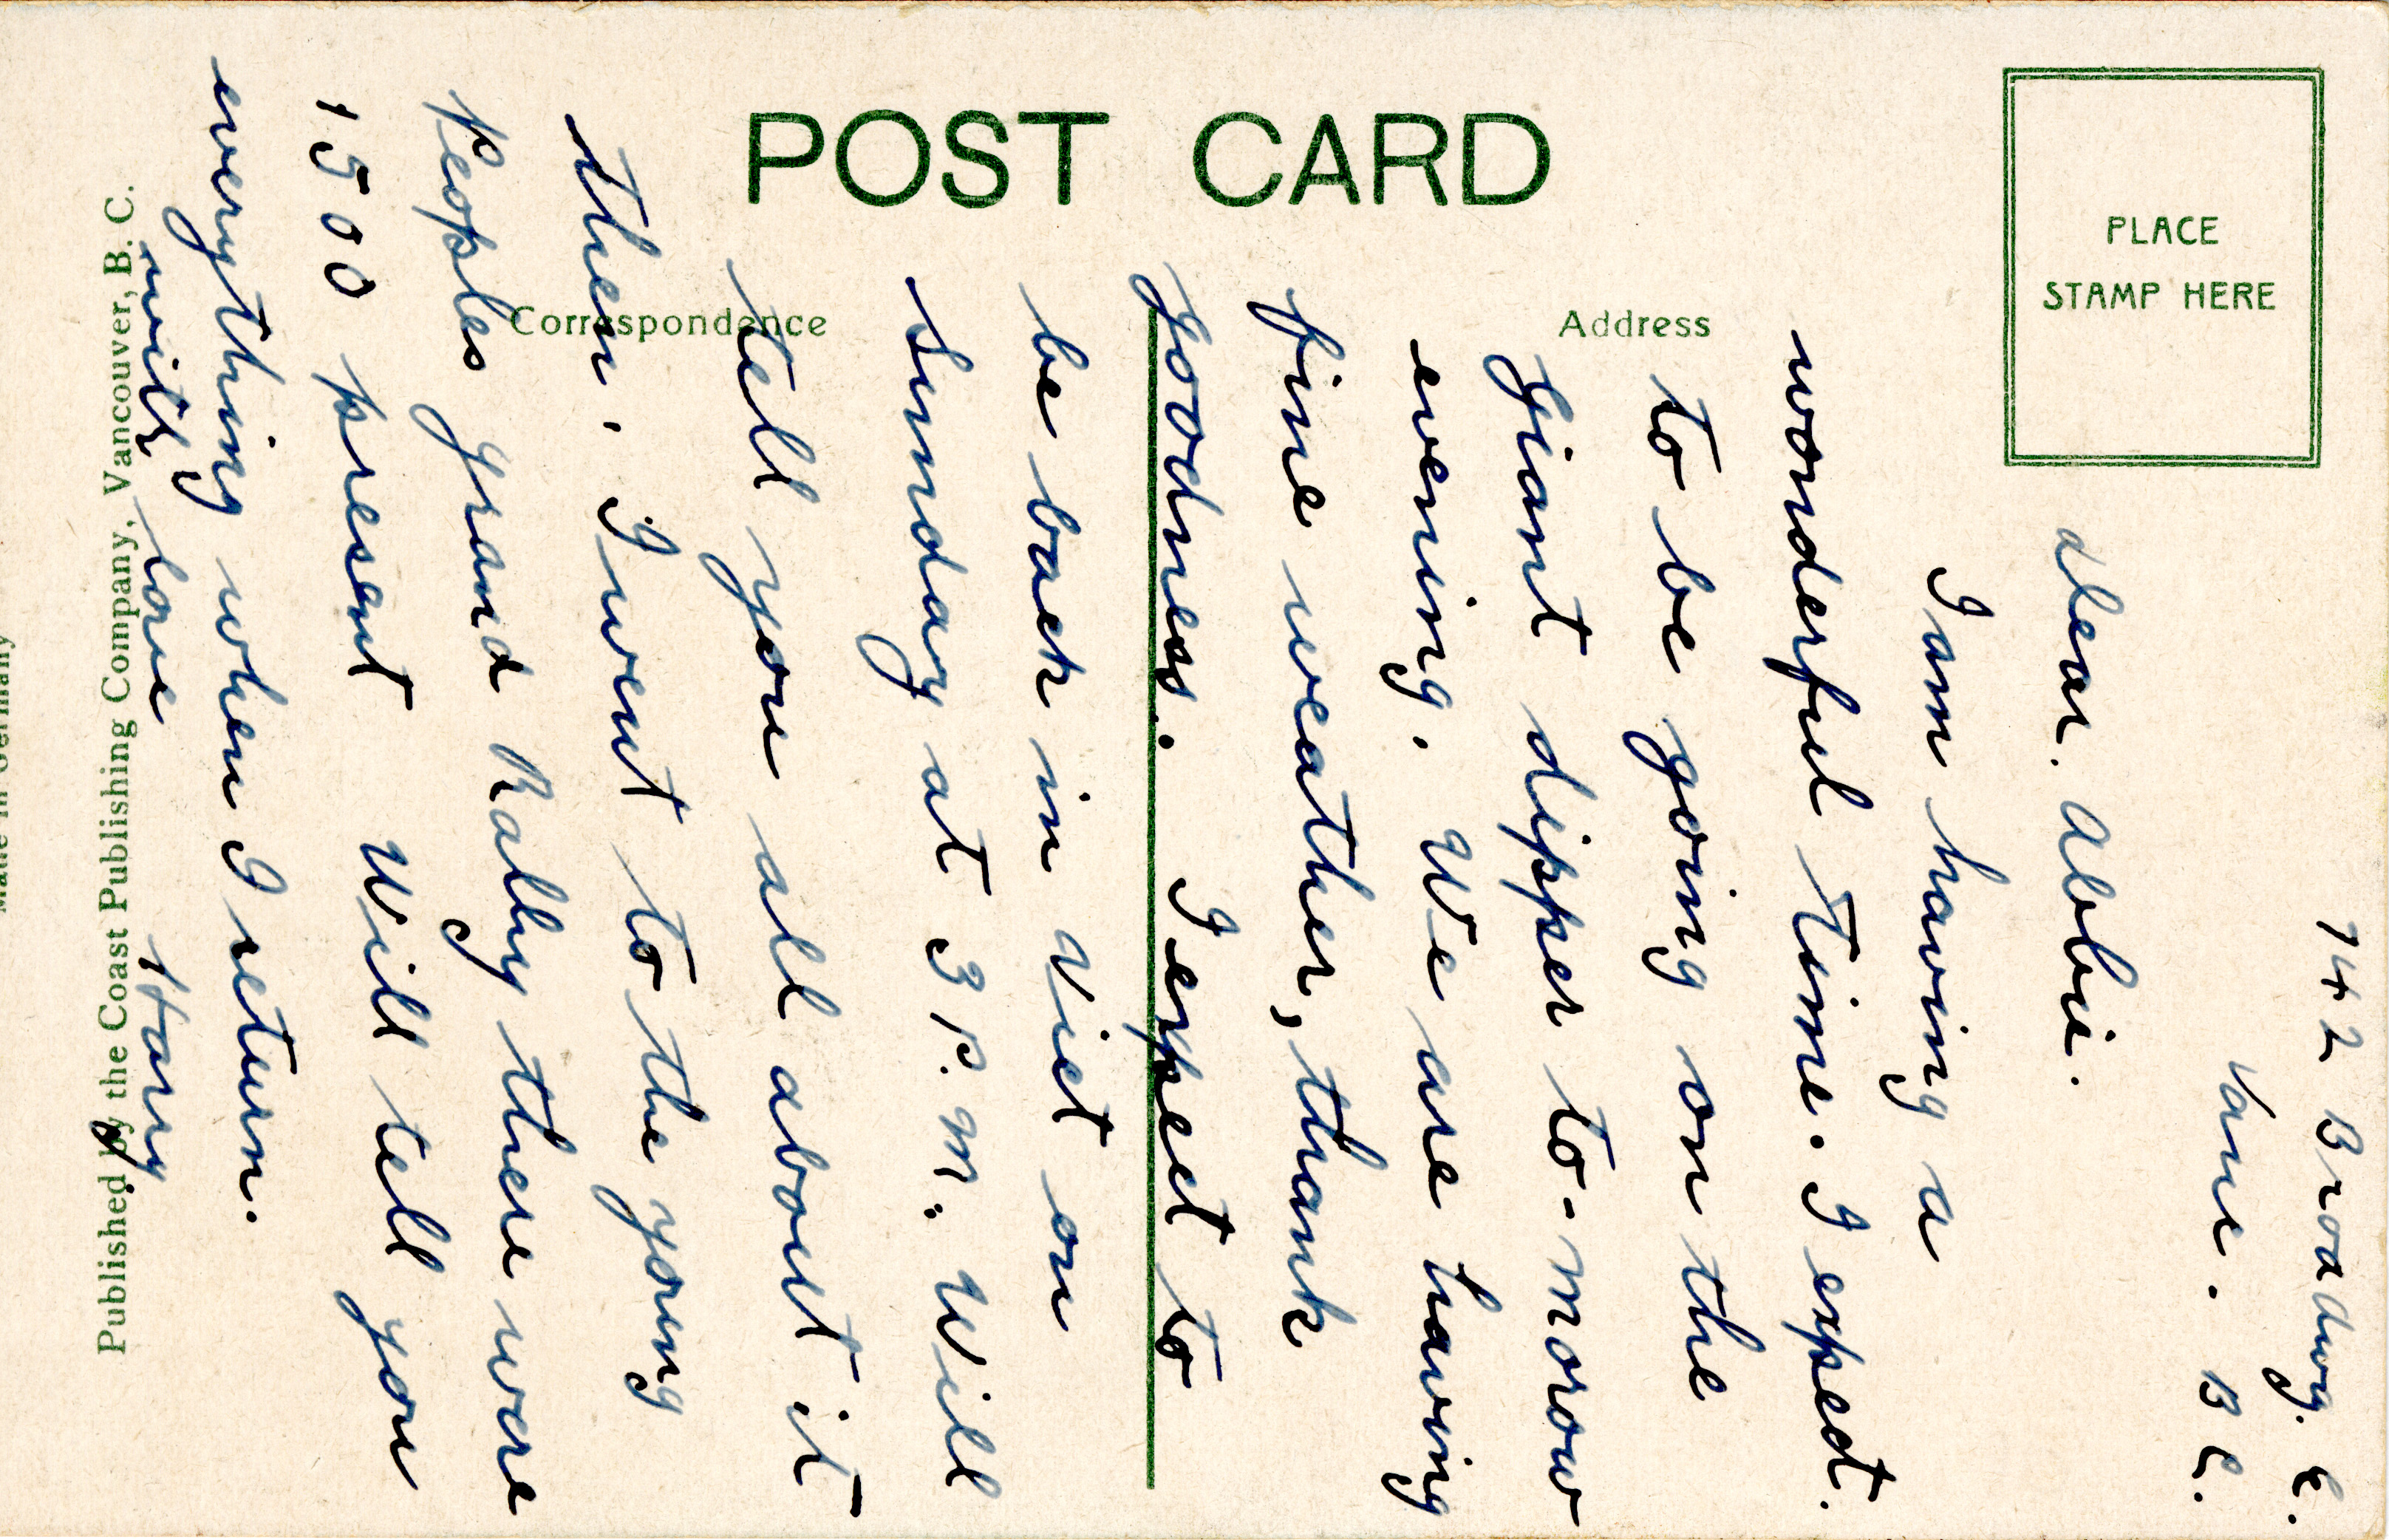 POST CARD
PLACE
STAMP HERE
Correspondence
Address
742 Broadway. E.
Vanc. B C.
dear. Abbie.
I am having a
wonderful time. I expect.
to be going on the
giant dipper to-morow
evening. We are having
fine weather, thank
goodness. I expect to
be back in Vict on
Sunday at 3 P. M. Will
tell you all about it
then. I went to the young
Peoples grand Rally there were
1500 present Will tell you
everything when I return.
with love
Published by the Coast Publishing Company, Vancouver, B. C.
Made in Germany